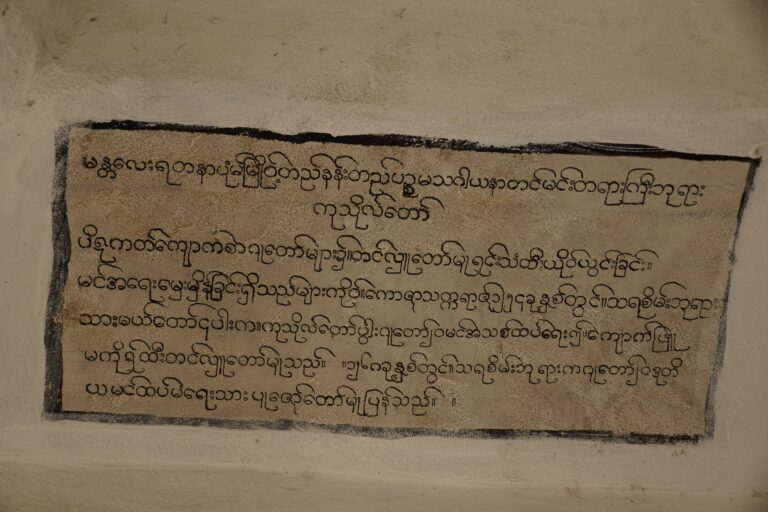 မန္တလေးရတနာပုံမြို့ဝှ့်တည်နန်းတည်ပဉ္စမသင်္ဂါယနာတင်မင်းတရားကြီးဘုရား
ကုသိုလ်တော်
ပိဋကတ်ကျောက်စာဂူတော်များ၌တင်လှူတော်မူရင်းသံထီးယိုင်ယွင်းခြင်း။
မင်အရေးမှေးမှိန်ခြင်းရှိသည်များကိုဝ်။ကောဇာသက္ကရာဇ်၁၂၅၄ခုနှစ်တွင်။သရစည်မင်းဘုရား
သားမယ်တော်၄ပါးက။ကုသိုလ်တော်ပွါးဂူတော်၌ဝ်မင်အသစ်ထပ်ရေး၍။ကျောက်ဖြူ
မကိုဋ်ထီးတင်လှူတော်မူသည်။ ။၁၂၆၈ခုနှစ်တွင်။သရစည်မင်းဘုရားကဂူတော်၌ဝ်ဒုတိ
ယမင်ထပ်မံရေးသားပူဇော်တော်မူပြန်သည်။ ။